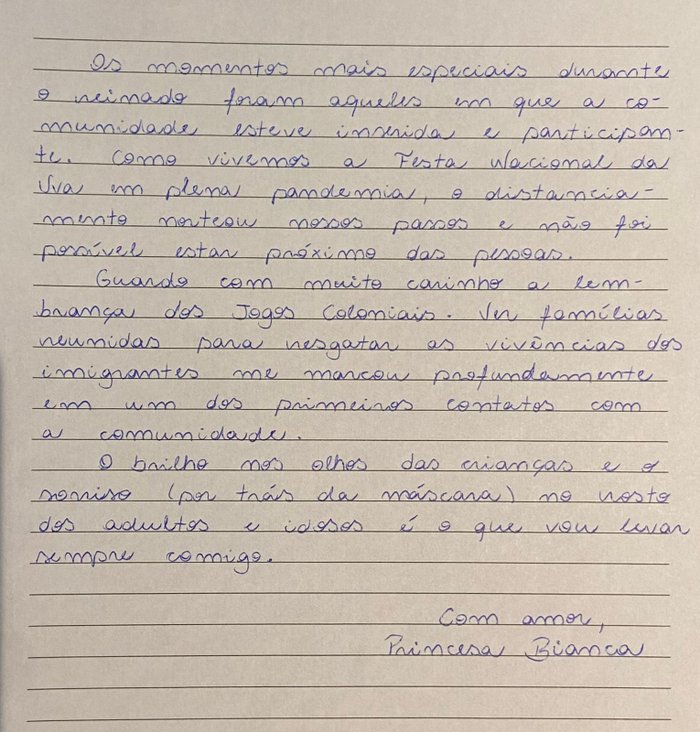 Os momentos mais especiais durante
o reinado foram aqueles em que a co-
munidade esteve inserida e participan-
te. Como vivemos a Festa Nacional da
Uva em plena pandemia, o distancia-
mento norteou nossos passos e não foi
possível estar próximo das pessoas.
Guardo com muito carinho a lem-
brança dos Jogos Coloniais. Ver famílias
reunidas para resgatar as vivências dos
imigrantes me marcou profundamente
em um dos primeiros contatos com
a comunidade.
O brilho nos olhos das crianças e o
sorriso (por trás da máscara) no rosto
dos adultos e idosos é o que vou levar
sempre comigo.
Com amor,
Princesa Bianca